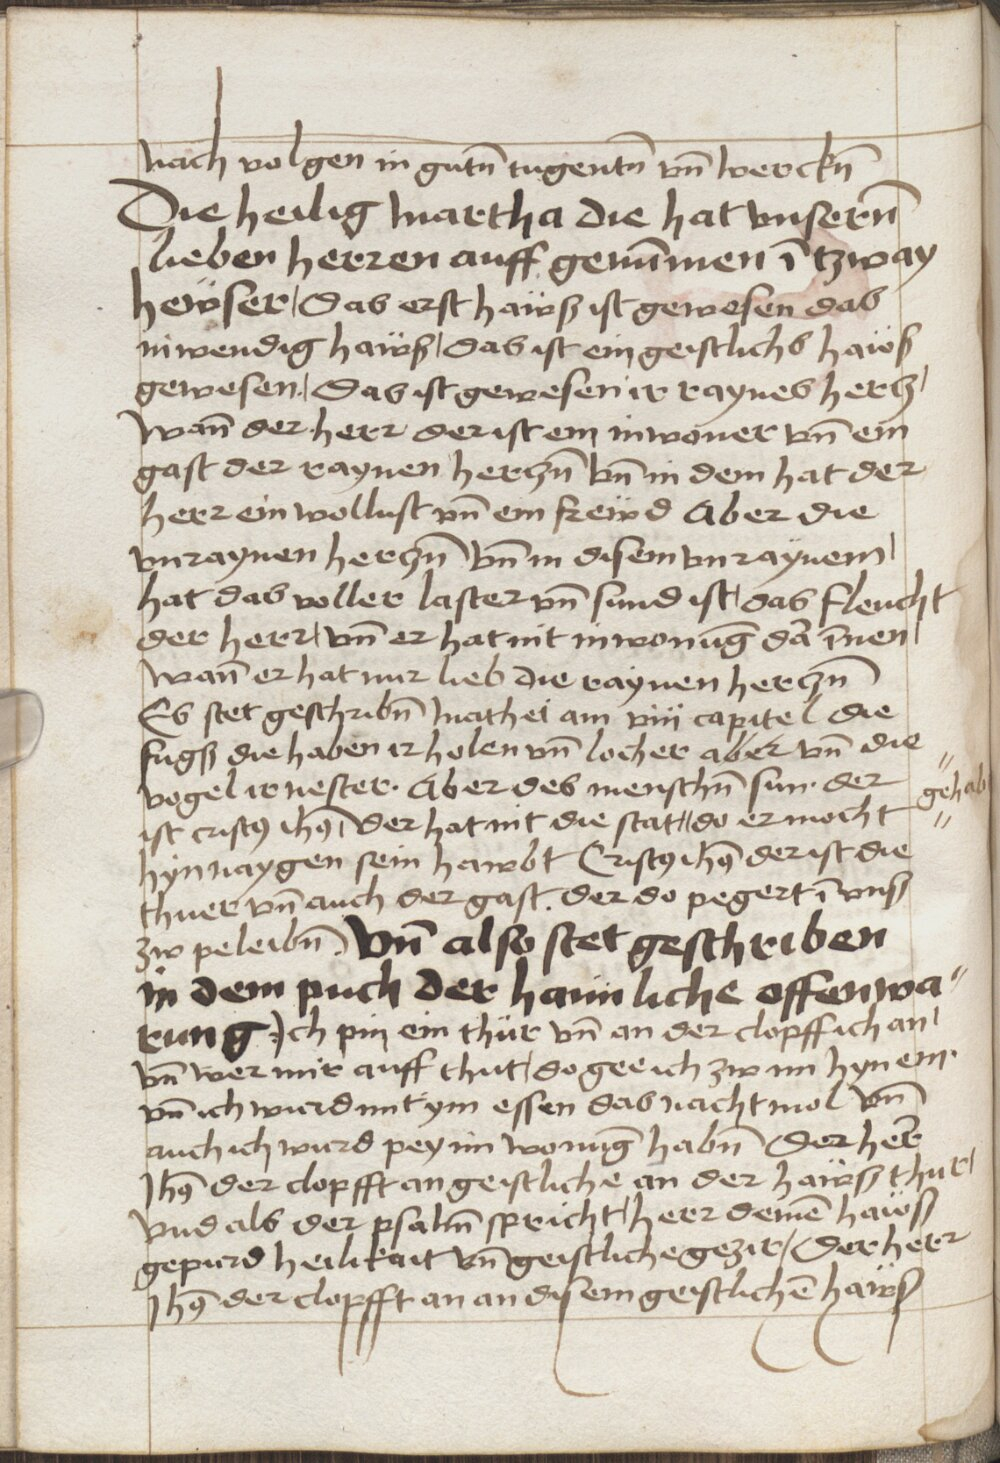 nach volgen in gutn̄ tugentn̄ vn̄ werckn̄
Die heilig martha die hat vnsern̄
lieben herren auff genūmen ī tzway
hewser / Das erst haẅß ist gewesen das
inwendig haẅß / das ist ein geistlichs haẅß
gewesen / Das ist gewesen ir raynes hertz /
Wan̄ der herr der ist ein inwoner vn̄ ein
gast der raynen hertzn̄ vn̄ in dem hat der
herr ein wollust vn̄ ein frewd Aber die
vnraynen hertzn̄ vn̄ in disem vnraynem /
hat das voller laster vn̄ sund ist / das fleucht
der herr / vn̄ er hat nit inwonūg dā īnen /
Wan̄ er hat nur lieb die raynen hertzn̄
Es stet geschribn̄ mathei am viij capitel die
fugß die haben ir holen vn̄ locher aber vn̄ die
vogel ir nester. Aber des menschn̄ sun. der
ist cristꝰ ihꝰ / der hat nit die stat // do er mocht // gehab //
hyn naygen sein hawbt Cristꝰ ihꝰ der ist die
thuer vn̄ auch der gast. der do pegert ī vnß
zw peleibn̄. Vn̄ also stet geschriben
in dem puch der haimliche offenwa-
rung. Ich pin ein thür vn̄ an der clopff ich an /
vn̄ wer mir auff thut / do gee ich zw im hyn ein.
vn̄ ich wurd mit ym essen das nacht mol vn̄
auch ich wurd pey im wonūg habn̄ Der her̄
Ihꝰ der clopfft an geistliche an der haẅß thur /
vnd als der psalm̄ spricht / herr deinē haẅß
gepurd heilikait vn̄ geistliche gezir / Der herr
Ihꝰ der clopfft an an disem geistlichē haẅß